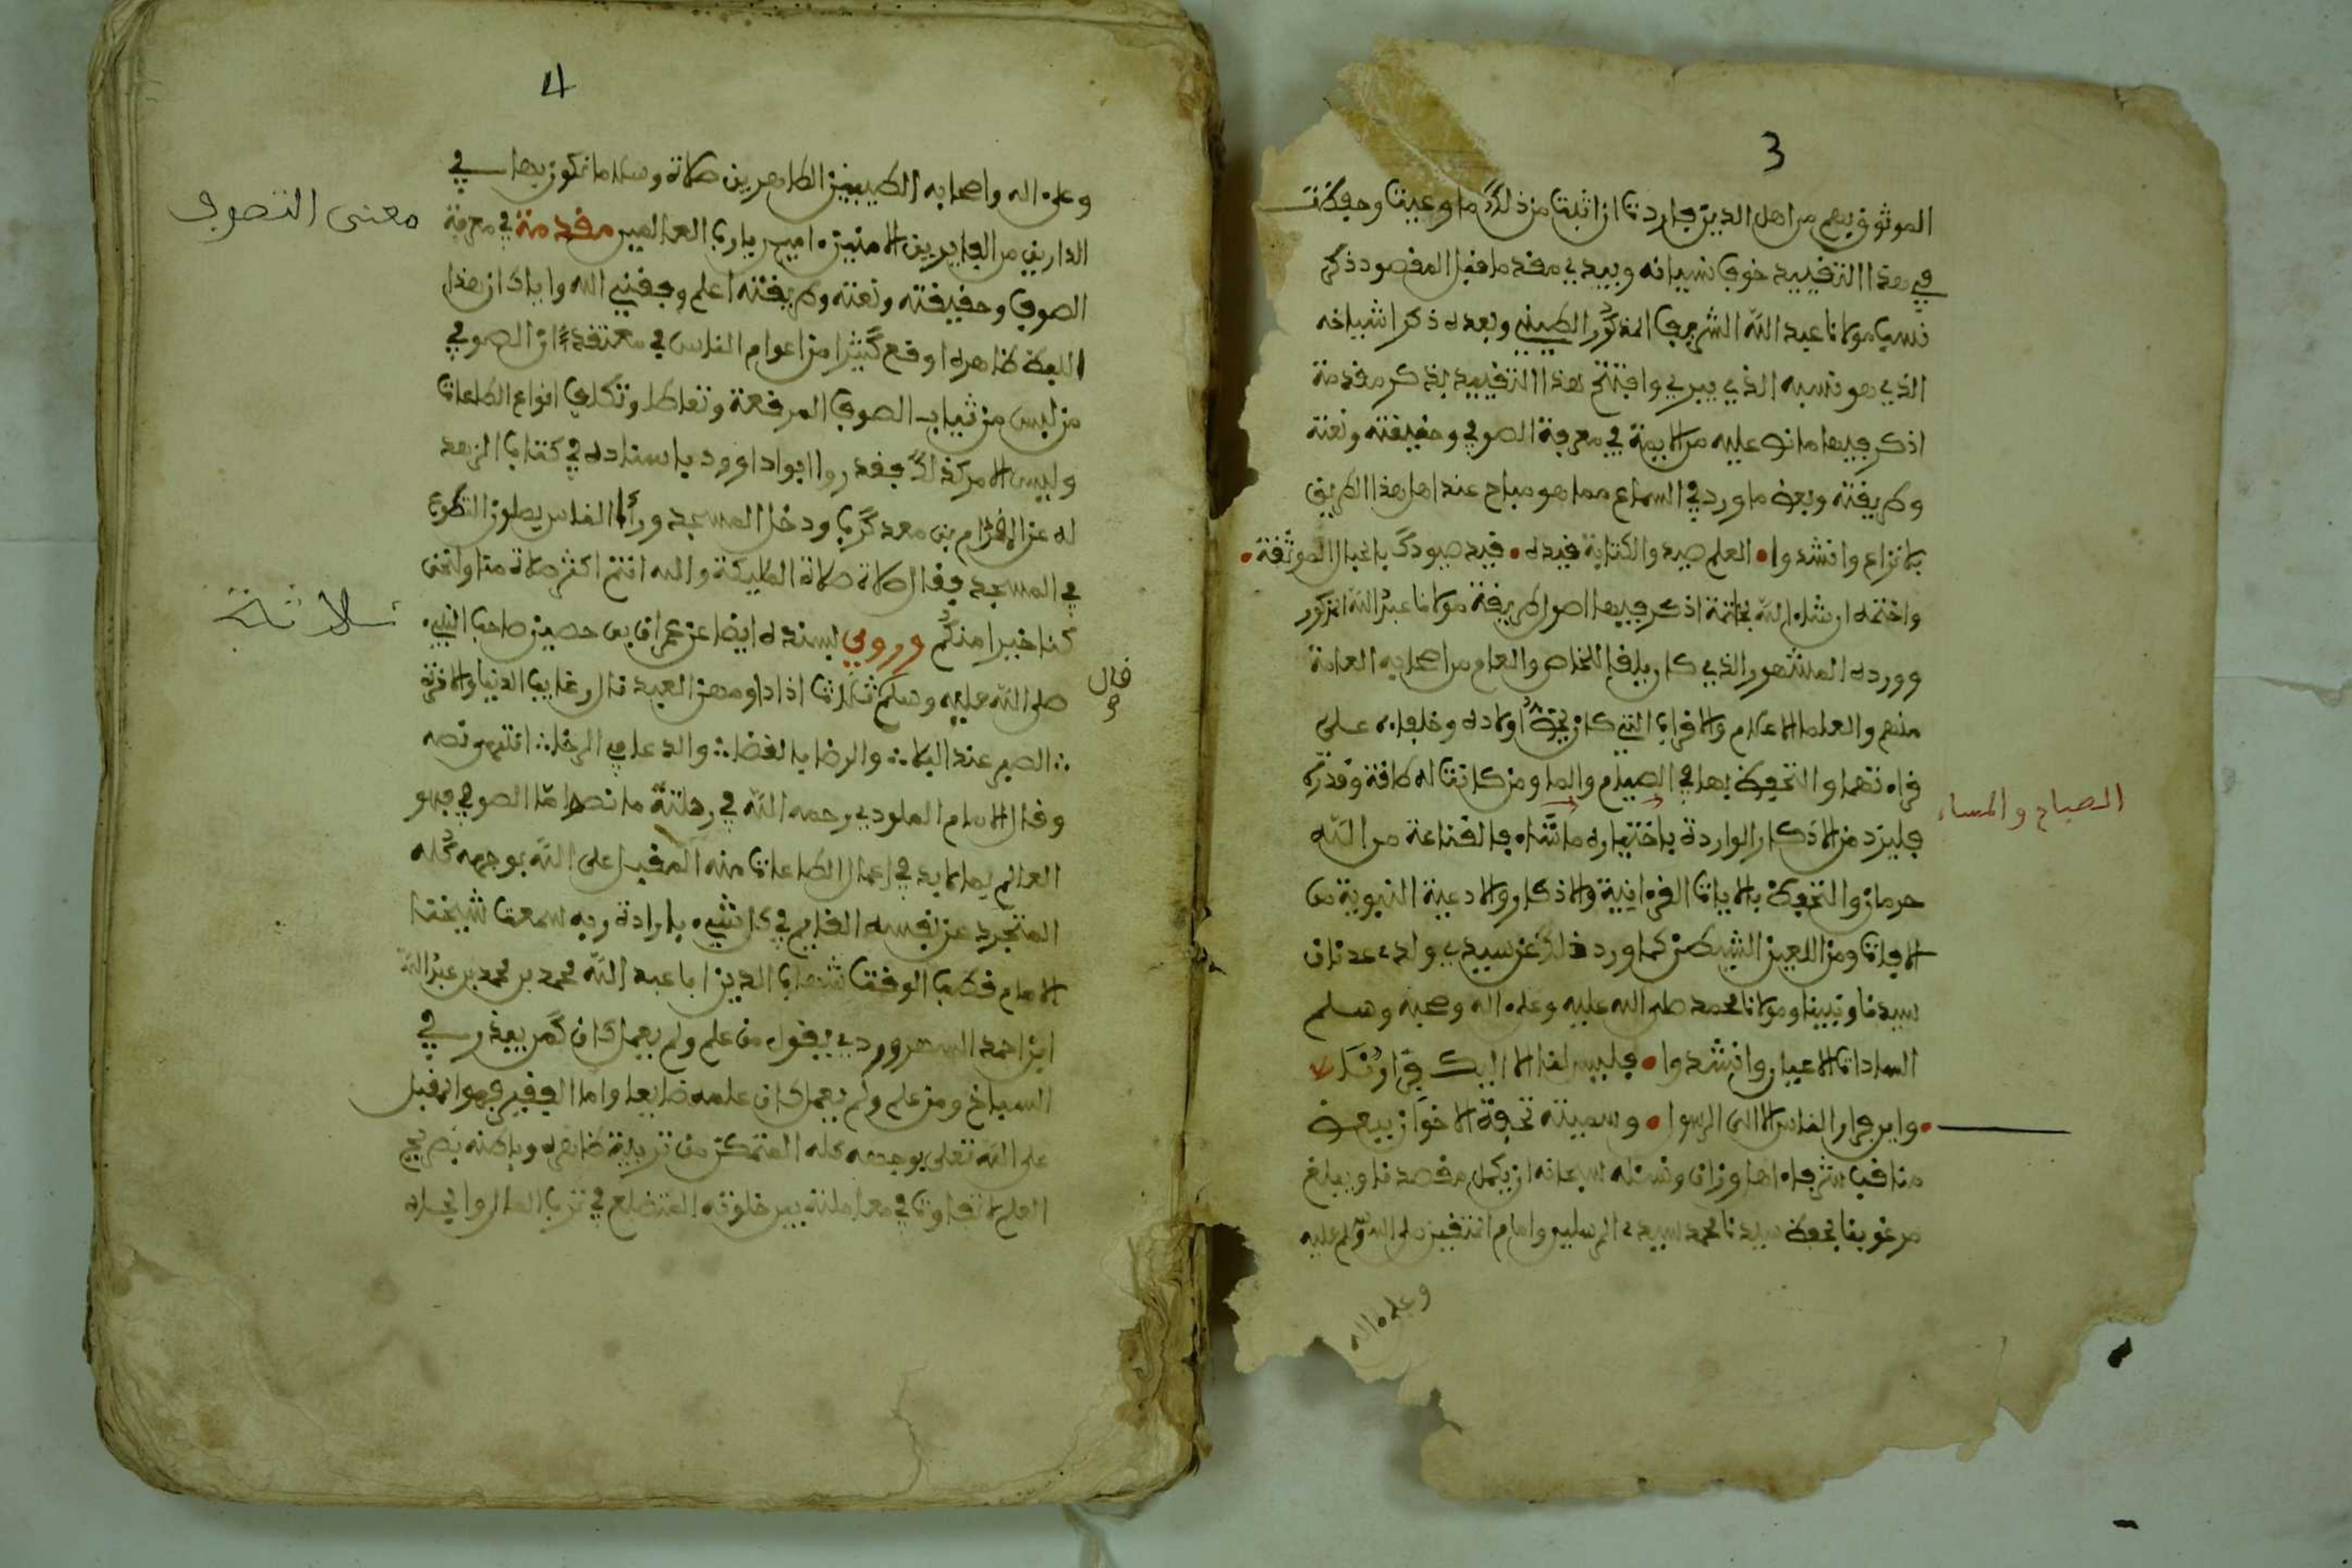 3
الموثوق بهم من اهل الدين فاردت ان اثبت من ذلك ما وعيت وحفظت
في هذا التقييد خوف نسيانه ويبدي مقدما قبل المقصود ذكر
نسب مولانا عبد الله الشريف المذكور الطيني وبعده ذكر اشياخه
الذي هو نسبه الذي يبري وافتتح هذا التقييد بذكر مقدمة
اذكر فيها ما نص عليه من الايمة في معرفة الصوفي وحقيقته ونعته
وطريقته وبعض ما ورد في السماع مما هو مباح عند اهل هذا الطريق
بلا نزاع وانشدوا • العلم صيد والكتابة قيده • قيد صيودك بالحبال الموثقة •
واختمه ان شاء الله بخاتمة اذكر فيها اصول طريقة مولانا عبد الله المذكور
وورده المشهور الذي كان يلقن للخاص والعام من اصحابه العامة
منهم والعلما الاعلام والاحزاب التي كان يحض اولاده وخلفاءه على
قراءتهما والتحفظ بها في الصيام والما ومن كانت له طاقة وقدرة
الصباح والمساء
فليزد من الاذكار الواردة باختياره ما شاء فالقناعة من الله
حرمان والتحفظ بالايات القرءانية والاذكار والادعية النبوية من
الافات ومن اللعين الشيطن كما ورد ذلك عن سيدي ولد عدنان
سيدنا ونبينا ومولانا محمد صلى الله عليه وعلى اله وصحبه وسلم
السادات الاعيان وانشدوا • فليس لنا الا اليك فرارنا
• واين فرار الناس الا الى الرسول • وسميته تحفة الاخوان ببعض
مناقب شرفاء اهل وزان ونسئله سبحانه ان يكمل مقصدنا ويبلغ
مرغوبنا بحفظ سيدنا محمد سيد المرسلين وامام المتقين صلى الله وسلم عليه
وعلى اله
4
وعلى اله واصحابه الطيبين الطاهرين صلاة وسلاما نكون بهما في
الدارين من الفايزين الامنين امين يا رب العالمين مقدمة في معرفة
معنى التصوف
الصوفي وحقيقته ونعته وطريقته اعلم وفقني الله واياك ان هذا
اللفظ ظاهره اوقع كثيرا من اعوام الناس في معتقد ان الصوفي
من لبس من ثياب الصوف المرقعة وتعاطا وتكلف انواع الطاعات
وليس الامر كذلك فقد روا ابو داوود باسناده في كتاب الزهد
له عن بن معد كرب ودخل المسجد ورأى الناس يصلون التطوع
في المسجد فقال صلاة الملايكة والله انتم اكثر صلاة منا ولنحن
كنا خيرا منكم وروي بسنده ايضا عن عمران بن حصين صاحب النبي
صلى الله عليه وسلم ثلاثا اذا داومهن العبد نال رغايب الدنيا والاخرة
ثلاثة
قال
صح
∴ الصبر عند البلا ∴ والرضا بالقضا ∴ والدعا في الرخا ∴ انتهى ونصه
وقال الامام الملودي رحمه الله في رحلته ما نصه اما الصوفي فهو
العالم بما لابد في اعمال الطاعات منه المقبل على الله بوجهه كله
المتجرد عن نفسه القايم في كل شيء بارادة ربه سمعت شيخنا
الامام قطب الوقت شهاب الدين ابا عبد الله محمد بن محمد بن عبد الله
ابن احمد السهروردي يقول من علم ولم يعمل كان كمن يبذر في
السباخ ومن علم ولم يعمل كان علمه ضايعا واما الفقير فهو المقبل
على الله تعلى بوجهه كله المتمكن من تربية ظاهره وباطنه بصريح
العلم لا تفاوت في معاملته بين خلوته المتضلع في ترك المال والجاه